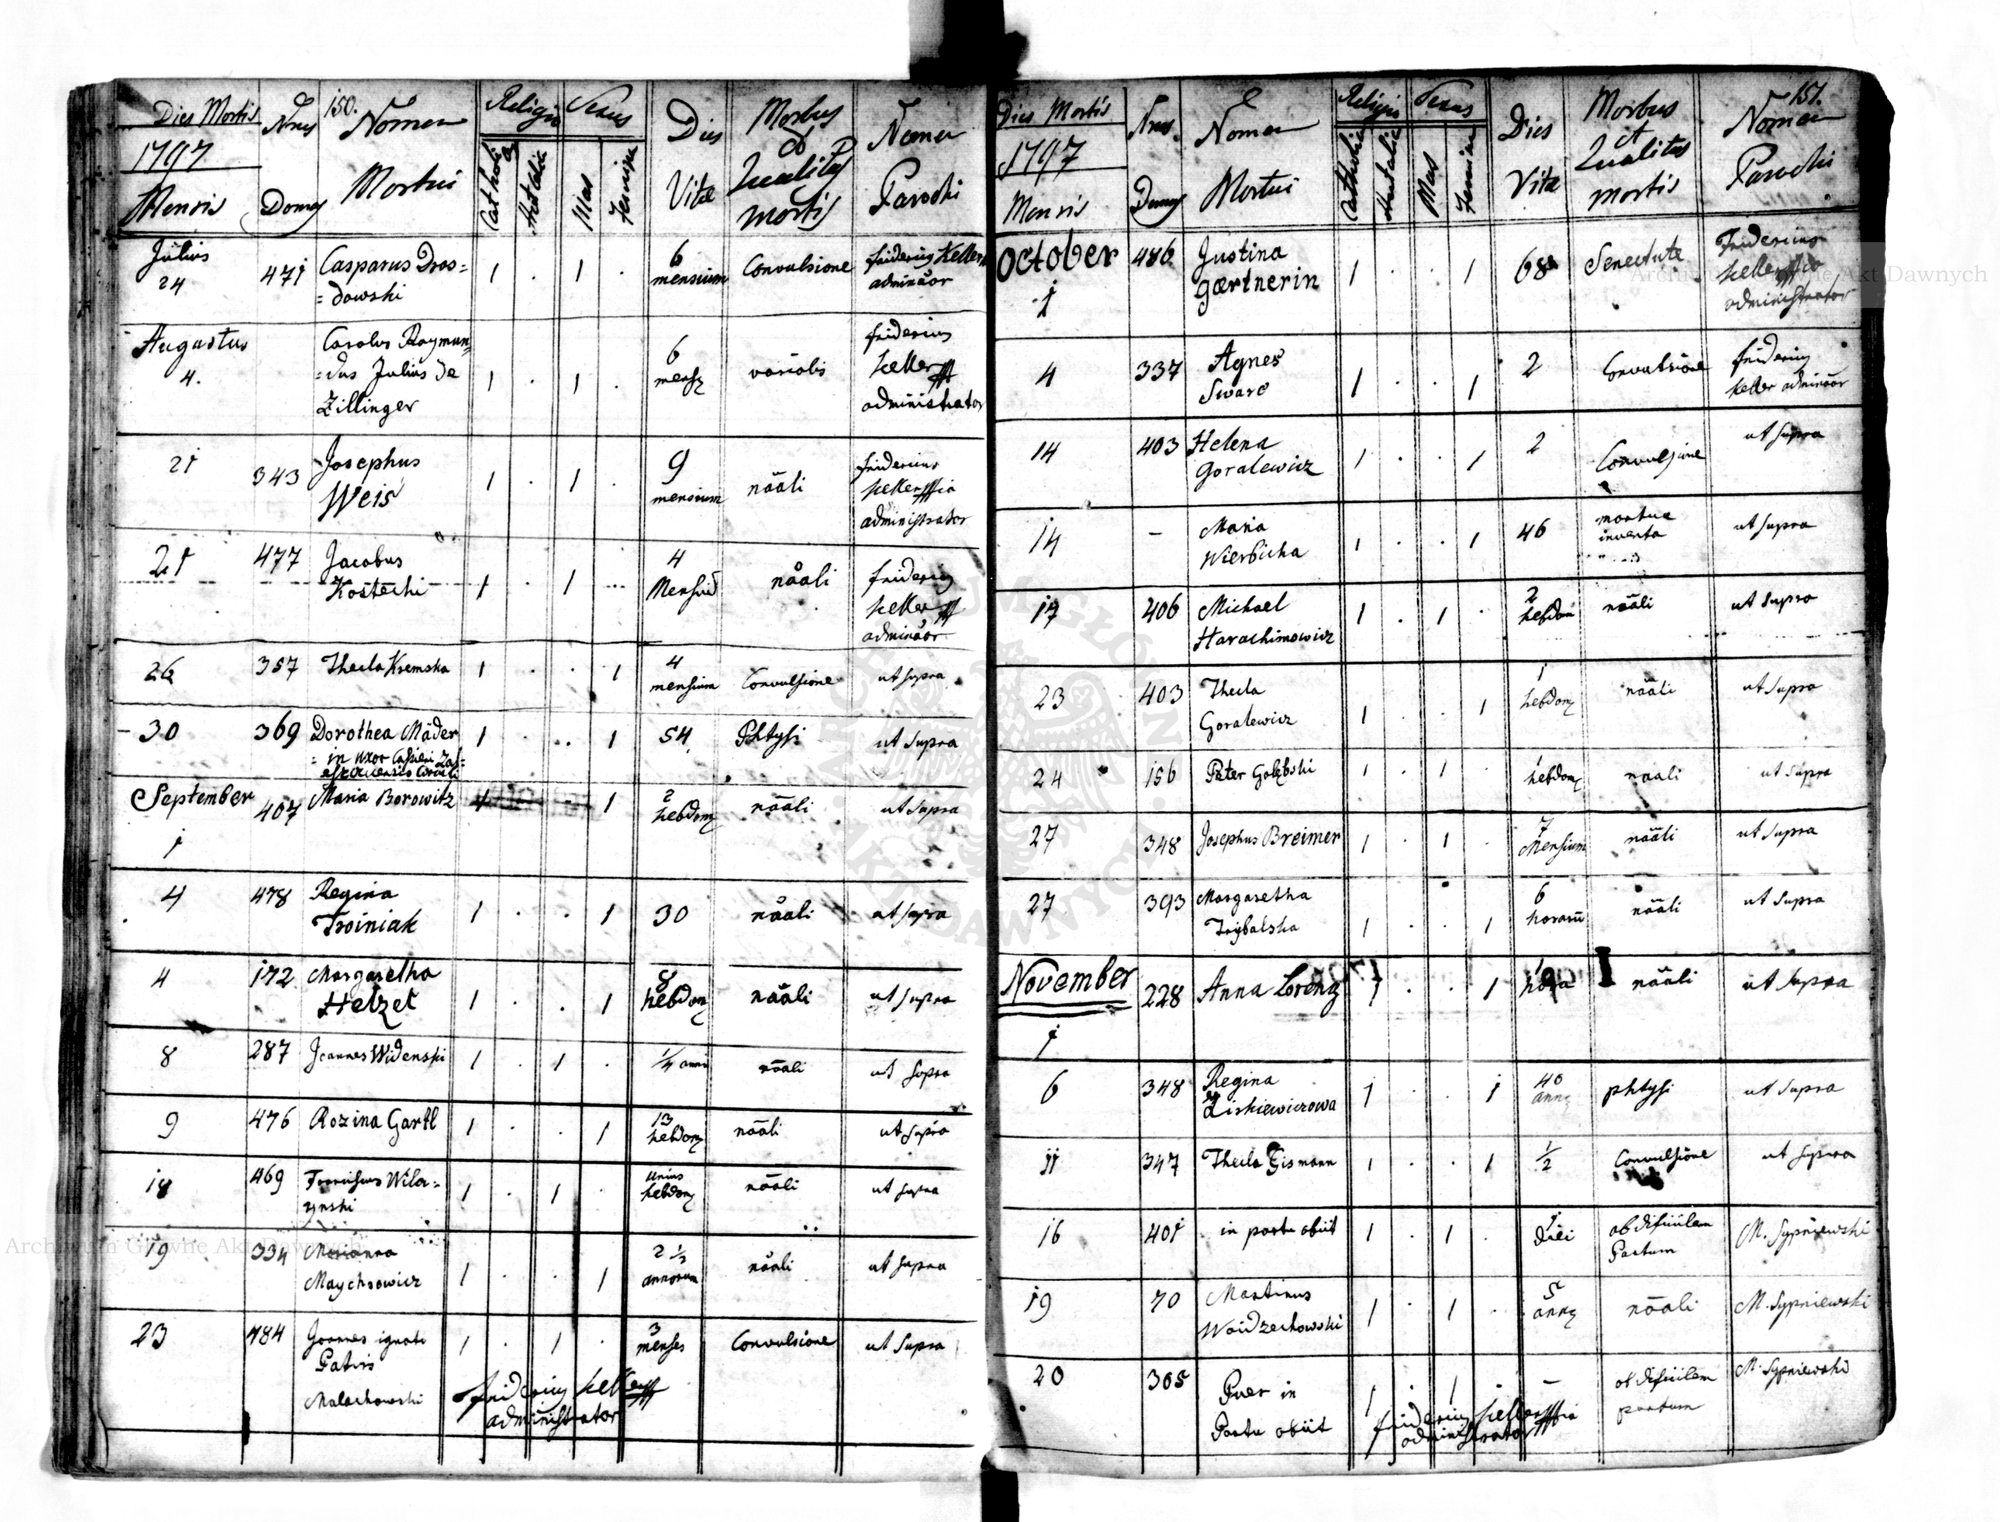 Dies Mortis Nrus 150. Nomen Religio Sexus Dies Morbus Nomen
1797 et
Mensis Domus Mortui Catholica Mas Femina Vitæ Qualitas mortis Parochi
Julius 24 471 Casparus Dros= 1 . 1 . 6 mensium Convulsione friderius Keller
=dowski adminãor
Augustus 4. Carolus Raymun= 1 . 1 . 6 mens variolis friderius
=dus Julius de keller
Zillinger administrator
21 343 Josephus 1 . 1 . 9 mensium nãali friderius
Weis keller
administrator
21 477 Jacobus 1 . 1 4 Mensiu nãali friderius
Kostecki keller
adminãor
26 357 Thecla Kremska 1 . . 1 4 mensium Convulsione ut supra
30 369 Dorothea Mäder 1 . . 1 54 Phtysi ut supra
=in uxor
September 1 407 Maria Borowitz 1 1 2 hebdom nãali ut supra
4 478 Regina 1 . . 1 30 nãali ut supra
Troiniak
4 172 Margaretha 1 . . 1 8 hebdom nãali ut supra
Hetzet
8 287 Joannes Widenski 1 . 1 . 1/4 anni nãali ut supra
9 476 Rozina Gartl 1 . . 1 13 hebdom nãali ut supra
18 469 1 . 1 . unius hebdom nãali ut supra
19 334 Marianna 1 . . 1 2 1/2 annorum nãali ut supra
Maychrowicz
23 484 Joannes ignati 1 . 1 . 3 menses Convulsione ut supra
Patris
Malachowski friderius keller
administrator
Dies Mortis Nrus. Nomen Religio Sexus Dies Morbus 151. Nomen
1797 et
Mensis Domus Mortui Catholica Mas Femina Vitæ Qualitas mortis Parochi
October 1 486 Justina 1 . . 1 68 Senectute friderius
Gærtnerin keller
administrator
4 337 Agnes 1 . . 1 2 Convulsione friderius
Swarc keller adminãor
14 403 Helena 1 . . 1 2 Convulsione ut supra
Goralewicz
14 - Maria 1 . . 1 46 mortua ut supra
Wierbicka inventa
17 406 Michael 1 . 1 . 2 hebdom nãali ut supra
Harachimowicz
23 403 Thecla 1 . . 1 1 hebdom nãali ut supra
Goralewicz
24 156 Peter Gołębski 1 . 1 . 1 hebdom naali ut supra
27 348 Josephus Breimer 1 . 1 . 7 Mensium nãali ut supra
27 393 Margaretha 1 . . 1 6 horarũ nãali ut supra
Trybalska
November 1 228 Anna Lorenz 1 . . 1 1 hora nãali ut supra
6 348 Regina 1 . . 1 40 ann phtysi ut supra
Liskiewiczowa
11 347 Thecla Gismann 1 . . 1 1/2 Convulsione ut supra
16 401 in partu obiit 1 . 1 . 1 diei ob dificilem M. Sypniewski
Partum
19 70 Martinus 1 . 1 . 5 ann nãali M. Sypniewski
Woidzechowski
20 305 Puer in 1 . 1 . - ob dificilem M. Sypniewski
Partu obiit partum
friderius keller
administrator
Archiwum Główne Akt Dawnych
Archiwum Główne Akt Dawnych
ARCHIWUM GŁÓWNE AKT DAWNYCH